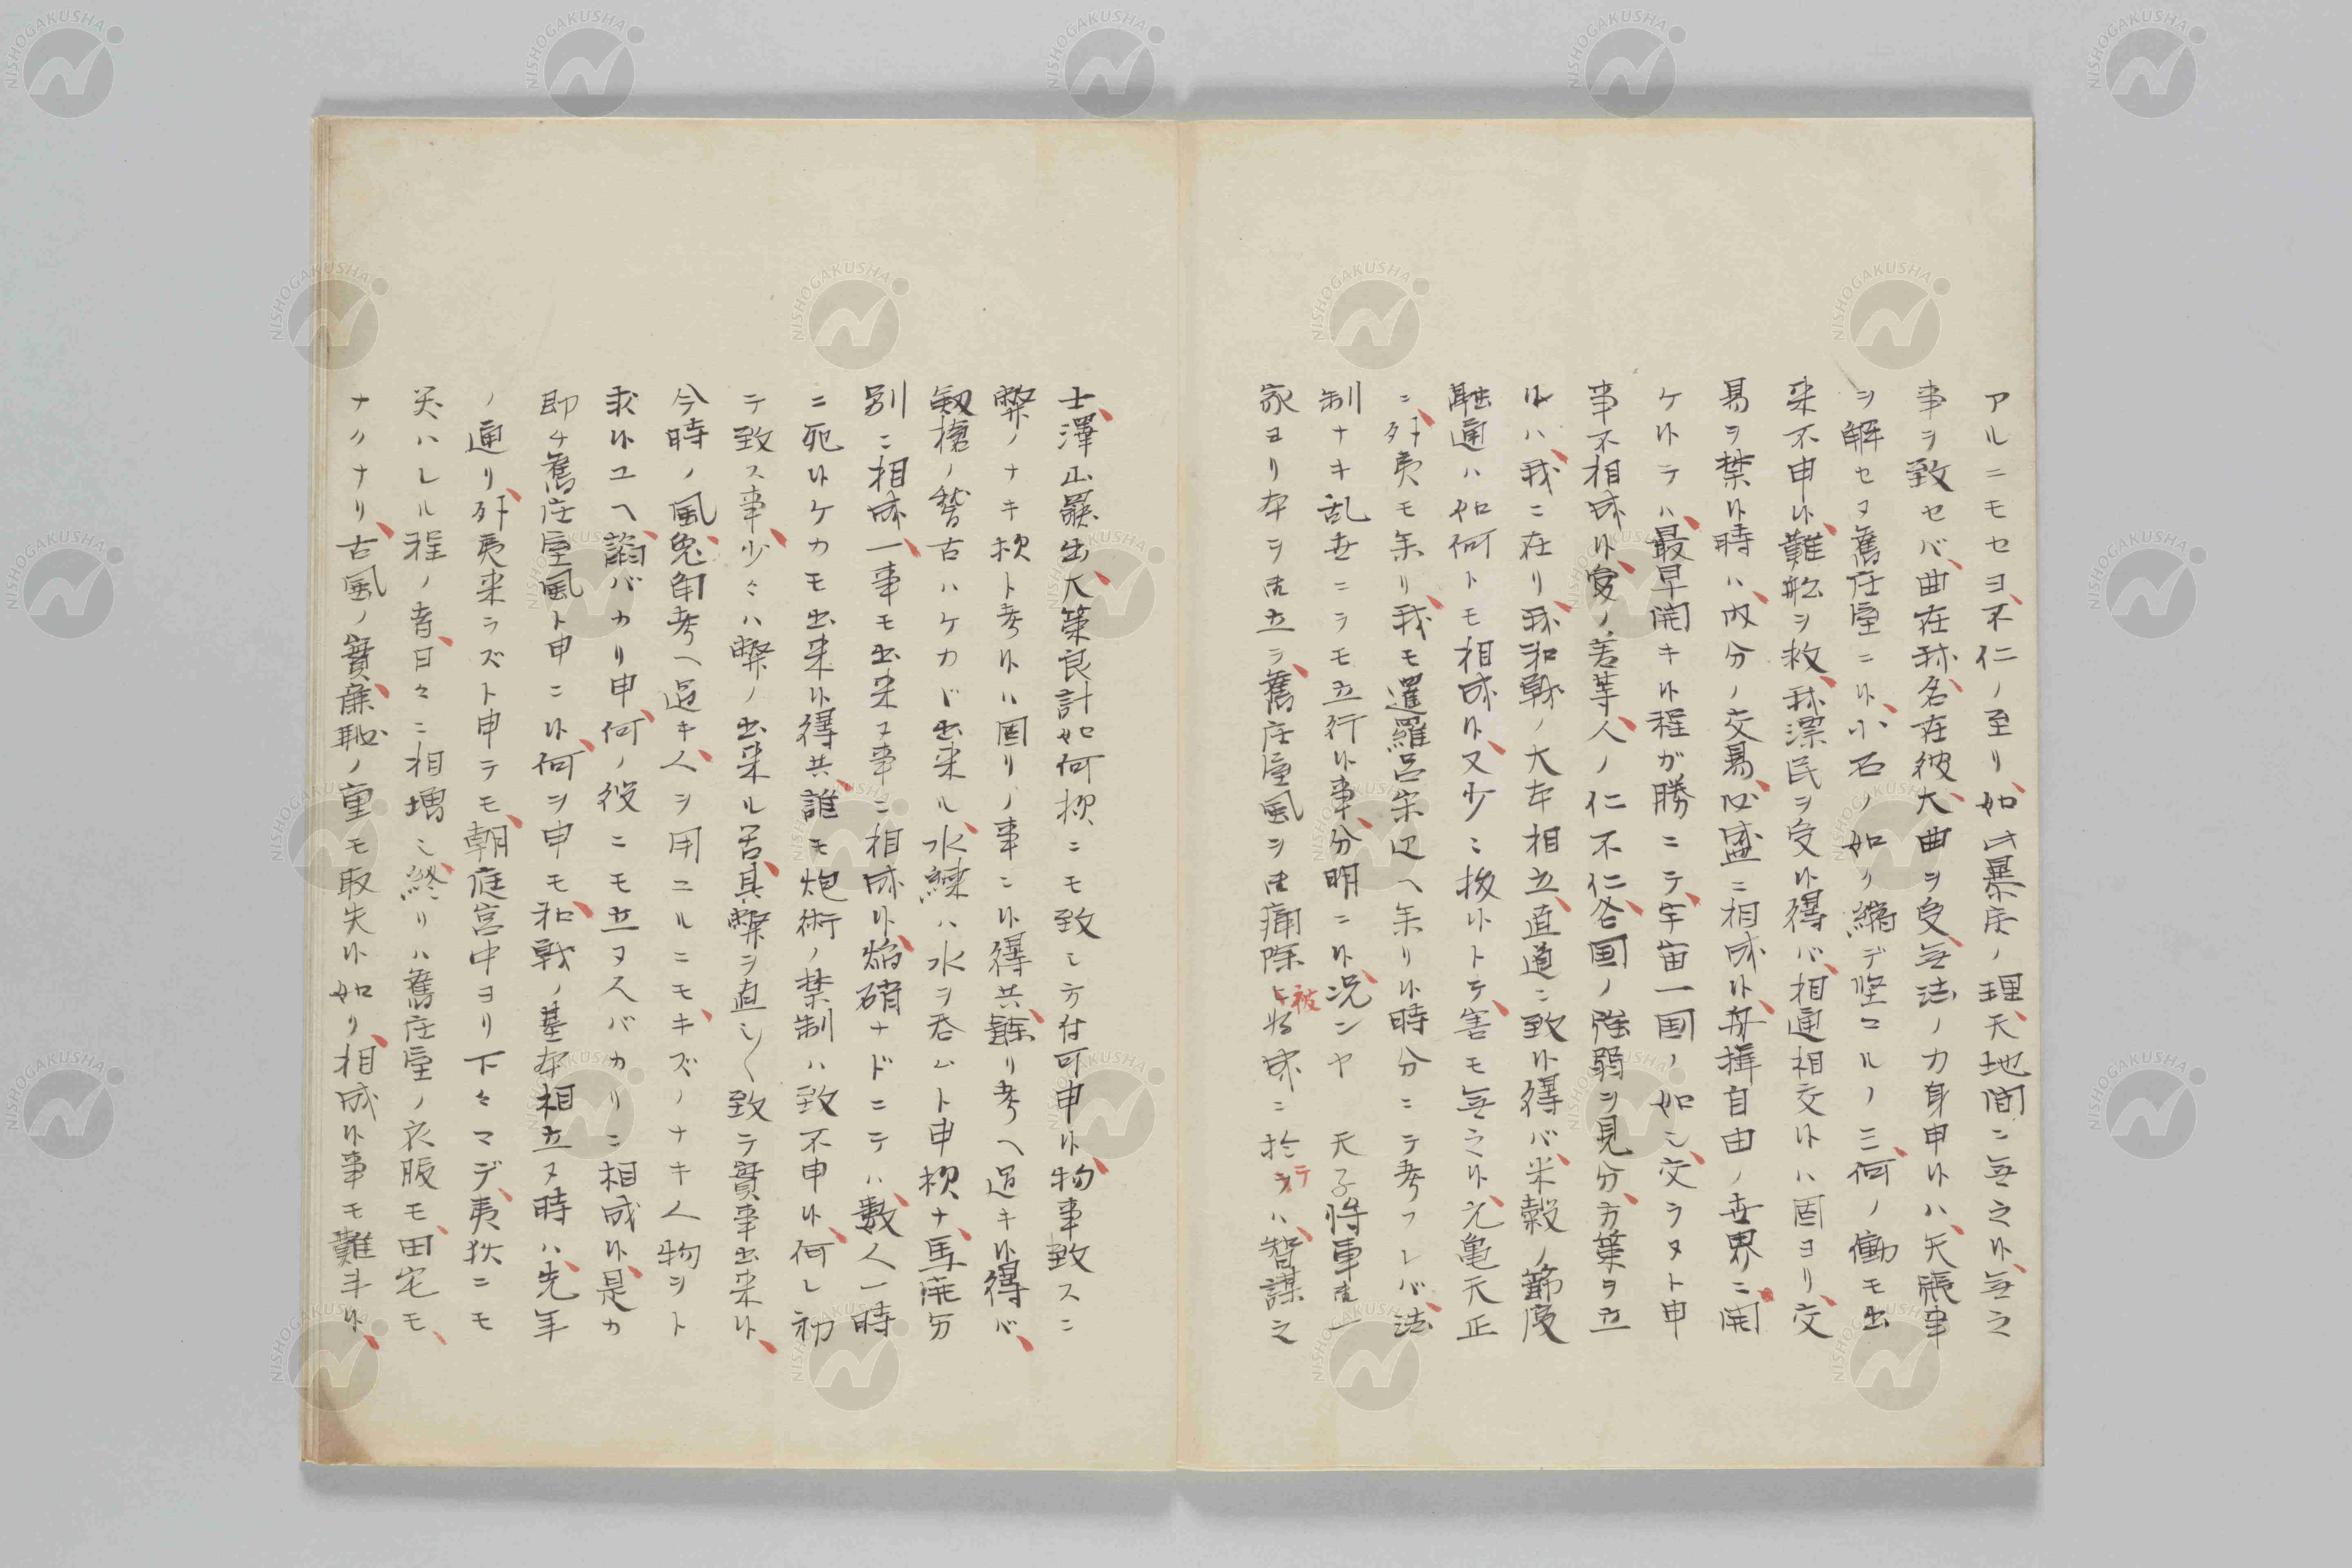 アルニモセヨ、不仁ノ至リ、如此暴戻ノ理、天地間ニ無之候、無之
事ヲ致セバ、曲在我、名在彼、大曲ヲ受、無法ノカ身申候ハ、天賬事
ヲ解セヌ舊庄屋ニ候、小石ノ如ク縮デ堅マルノミ、何ノ働モ出
来不申候、難船ヲ救、我漂民ヲ受候得バ、相通相交候ハ固ヨリ、交
易ヲ禁候時ハ、内分ノ交易、必盛ニ相成候、舟揖自由ノ世界ニ開
ケ候テハ、最早開キ候程ガ勝ニテ、宇宙一国ノ如シ、交ラヌト申
事不相成候、愛ノ差等、人ノ仁不仁、各国ノ強弱ヲ見分、方策ヲ立
候ハ、我ニ在リ、我和戦ノ大本相立、直道ニ致候得バ、米穀ノ節度
融通ハ如何トモ相成候、又少シ拔候トテ、害モ無之候、元亀天正
ニ、外夷モ来リ、我モ暹羅呂宋辺ヘ来リ候時分ニテ考フレバ、法
制ナキ乱世ニテモ立行候事、分明ニ候、况ンヤ 天子将軍
家ヨリ本ヲ立ラ、舊庄屋風ヲ痛除被 成ニ於テハ、智謀之
士、澤山羅出、大策良計如何様ニモ致シ方付可申候、物事致スニ
弊ノナキ様ト考候ハ固リノ事ニ候得共、餘リ考ヘ過キ候得バ、
劔槍ノ誓古ハケカド出来ル、水練ハ水ヲ呑ムト申様ナ、馬廉分
別ニ相成、一事モ出来ヌ事ニ相成候、焔硝ナドニテハ、數人一時
ニ死候ケカモ出来候得共、誰モ炮術ノ禁制ハ致不申候、何レ初
テ致ス事、少々ハ弊ノ出来ル筈、其弊ヲ直シ〱致テ實事出来候、
今時ノ風、兔角考ヘ過キ、人ヲ用ユルニモ、キズノナキ人物ヲト
求候ユヘ、謟バカリ申、何ノ役ニモ立ヌスバカリニ相成候、是カ
即チ舊庄屋風ト申ニ候、何ヲ申モ、和戦ノ基本相立ヌ時ハ、先年
ノ通リ、外夷来ラズト申テモ、朝庭宮中ヨリ下々マデ、夷狄ニモ
笑ハレル程ノ奢、日々ニ相増シ、終リハ舊庄屋ノ衣服モ、田宅モ、
ナクナリ、古風ノ實、廉恥ノ重モ取失候如ク、相成候事モ難斗候、